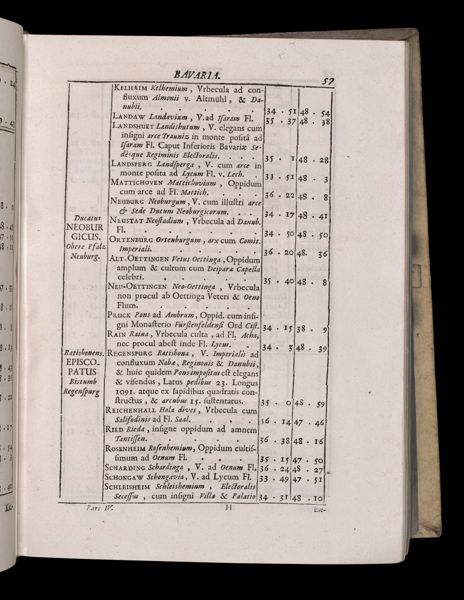 BAVARIA. 57
KELHAIM Kelhemium, Vrbecula ad con-
fluxum Almonii v. Altmühl, & Da-
nubii. 34 . 51 48 . 54
LANDAW Landavium, V. ad Isaram Fl. 35 . 37 48 . 38
LANDSHUET Landishutum, V. elegans cum
insigni arce Trausniz in monte posita ad
Isaram Fl. Caput Inferioris Bavariæ Se-
désque Regiminis Electoralis. 35 . 1 48 . 28
LANDSPERG Landsperga, V. cum arce in
monte posita ad Lycum Fl. v. Lech. 33 . 51 48 . 3
MATTICHOVEN Mattichovium, Oppidum
cum arce ad Fl. Mattich. 36 . 22 48 . 8
NEUBURG Neoburgum, V. cum illustri arce
& Sede Ducum Neoburgicorum. 34 . 17 48 . 41
Ducatus
NEOBUR
GICUS.
Obere Pfalz
Neuburg.
NEUSTAT Neostadium, Vrbecula ad Danub.
Fl. 34 . 50 48 . 50
ORTENBURG Ortenburgum, arx cum Comit.
Imperiali. 36 . 20 48 . 36
ALT-OETTINGEN Vetus Oettinga, Oppidum
amplum & cultum cum Deiparæ Capella
celebri. 35 . 40 48 . 8
NEU-OETTINGEN Neo-Oettinga, Vrbecula
non procul ab Oettinga Veteri & Oeno
Flum.
PRUCK Pons ad Ambrum, Oppid. cum insi-
gni Monasterio Fürstenfeldensi Ord Cist. 34 . 15 38 . 9
RAIN Raina, Vrbecula culta, ad Fl. Acha,
nec procul abest inde Fl. Lycus. 34 . 3 48 . 39
Ratisbonens.
EPISCO-
PATUS
Bistumb
Regenspurg
REGENSPURG Ratisbona, V. Imperialis ad
confluxum Nabæ, Reginonis & Danubii,
& huic quidem Pons impositus est elegans
& visendus, Latus pedibus 23. Longus
1091. atque ex lapidibus quadratis con-
structus, & arcubus 15. sustentatus. 35 . 0 48 . 59
REICHENHALL Hala dives, Vrbecula cum
Salifodinis ad Fl. Saal. 36 . 14 47 . 46
RIED Rieda, insigne oppidum ad amnem
36 . 38 48 . 16
ROSENHEIM Rosenhemium, Oppidum cultis-
simum ad Oenum Fl. 35 . 15 47 . 50
SCHARDING Schardinga, V. ad Oenum Fl. 36 . 24 48 . 27
SCHONGAW Schongavia, V. ad Lycum Fl. 33 . 49 47 . 51
SCHLEISHEIM Schleishemium, Electoralis
Secessus, cum insigni Villa & Palatio 34 . 31 48 . 10
Pars IV. H